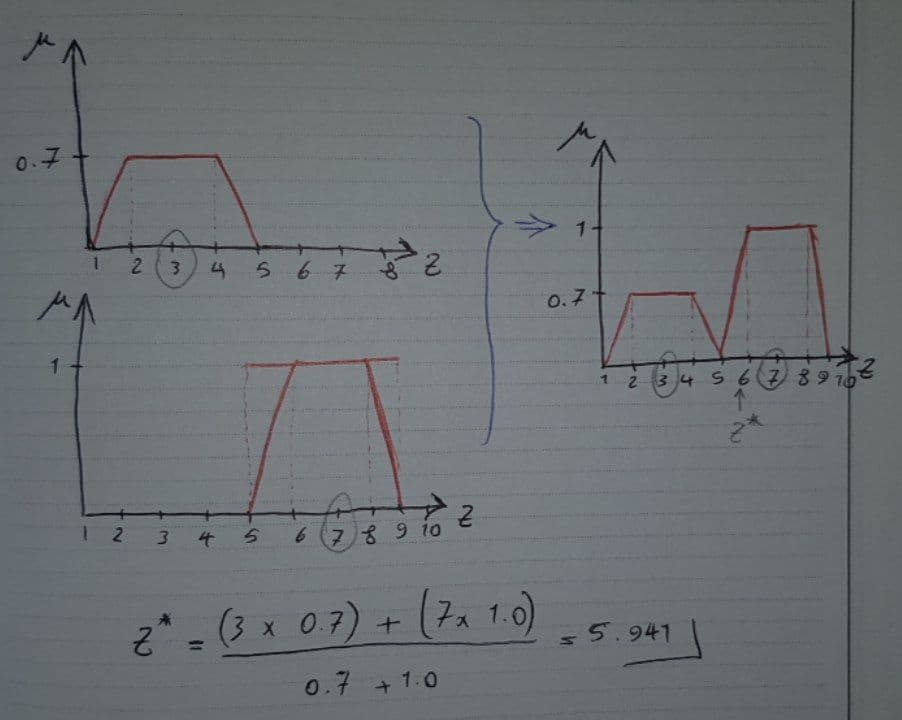 μ
0.7
1 2 3 4 5 6 7 8 Z
μ
1
1 2 3 4 5 6 7 8 9 10 Z
⇒
μ
1
0.7
1 2 3 4 5 6 7 8 9 10 Z
↑
Z*
Z* = (3 x 0.7) + (7x 1.0) = 5.941
0.7 + 1.0